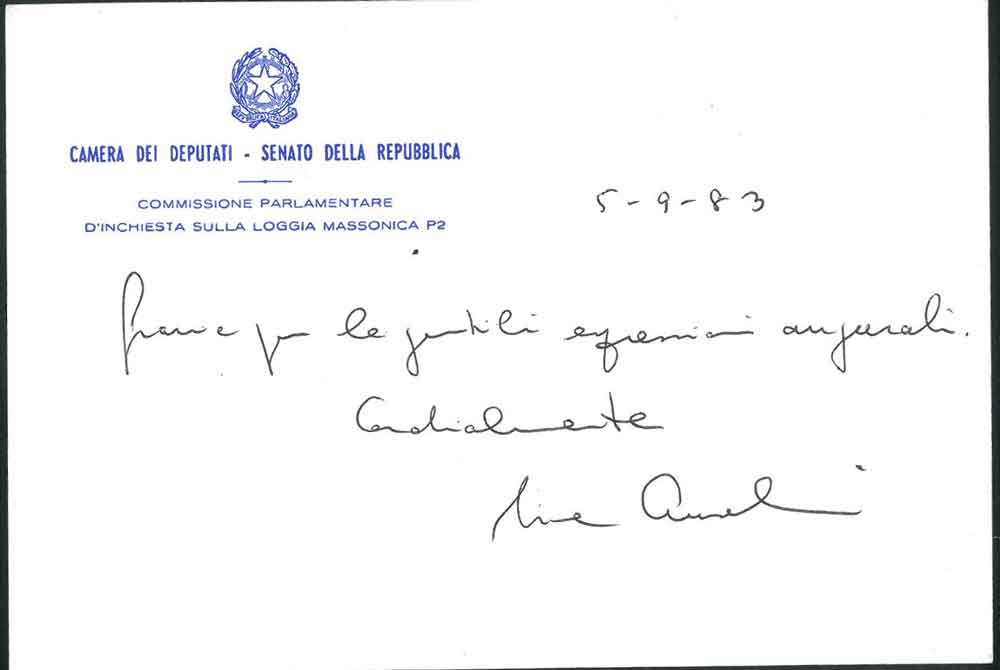 CAMERA DEI DEPUTATI - SENATO DELLA REPUBBLICA
COMMISSIONE PARLAMENTARE
D'INCHIESTA SULLA LOGGIA MASSONICA P2
5-9-83
Grazie per le gentili espressioni augurali.
Cordialmente
Tina Anselmi